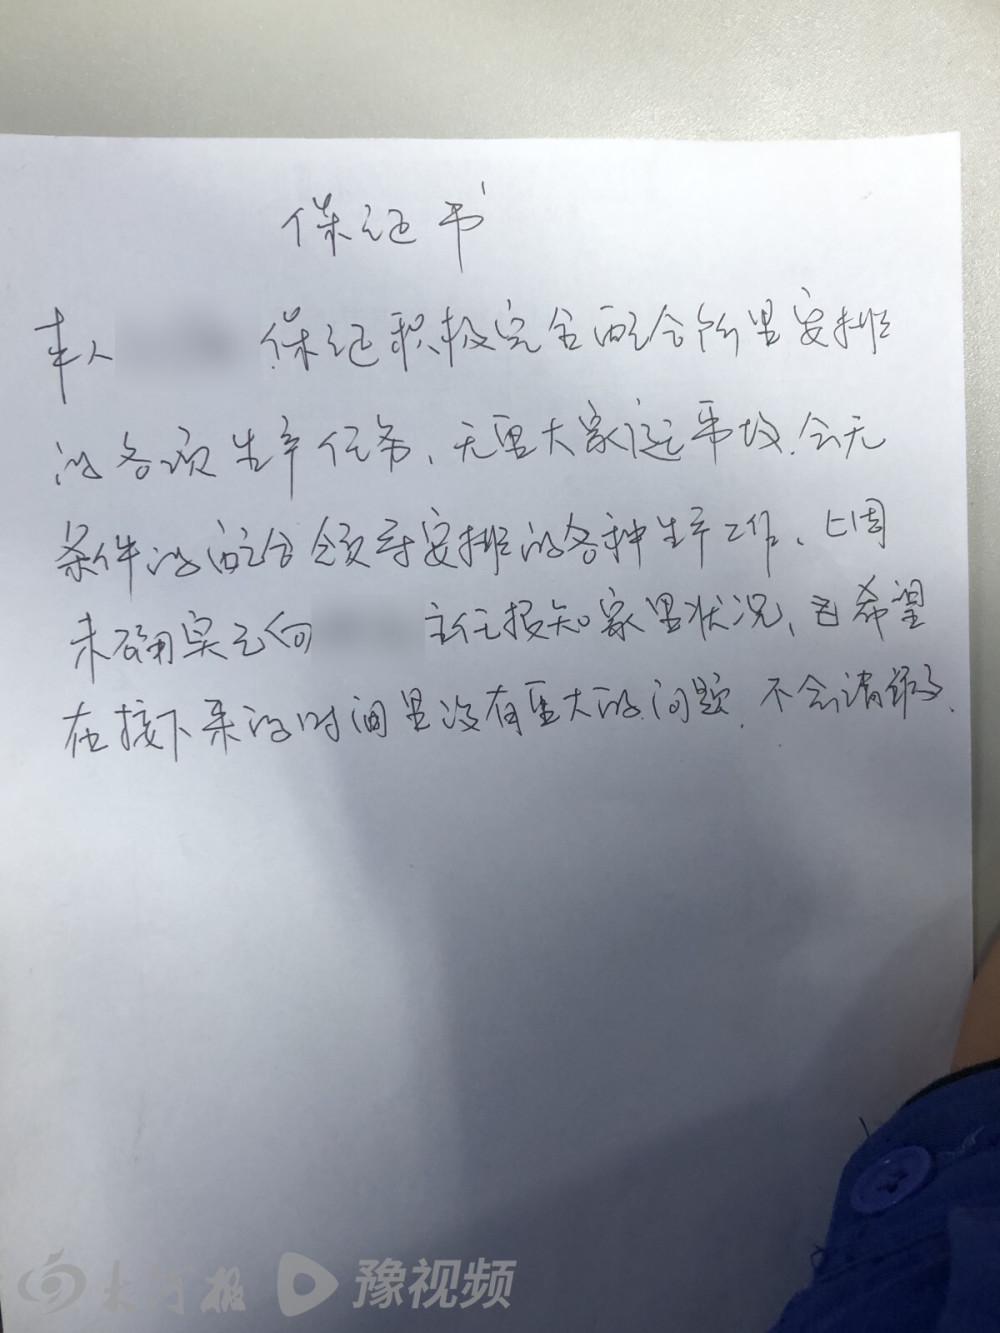 保证书
本人 保证积极完全配合所里安排
的各项生产任务、无重大家庭事故.会无
条件的配合领导安排的各种生产工作、上周
未确实已向 主任报知家里状况、也希望
在接下来的时间里没有重大的问题.不会请假、
大河报 豫视频